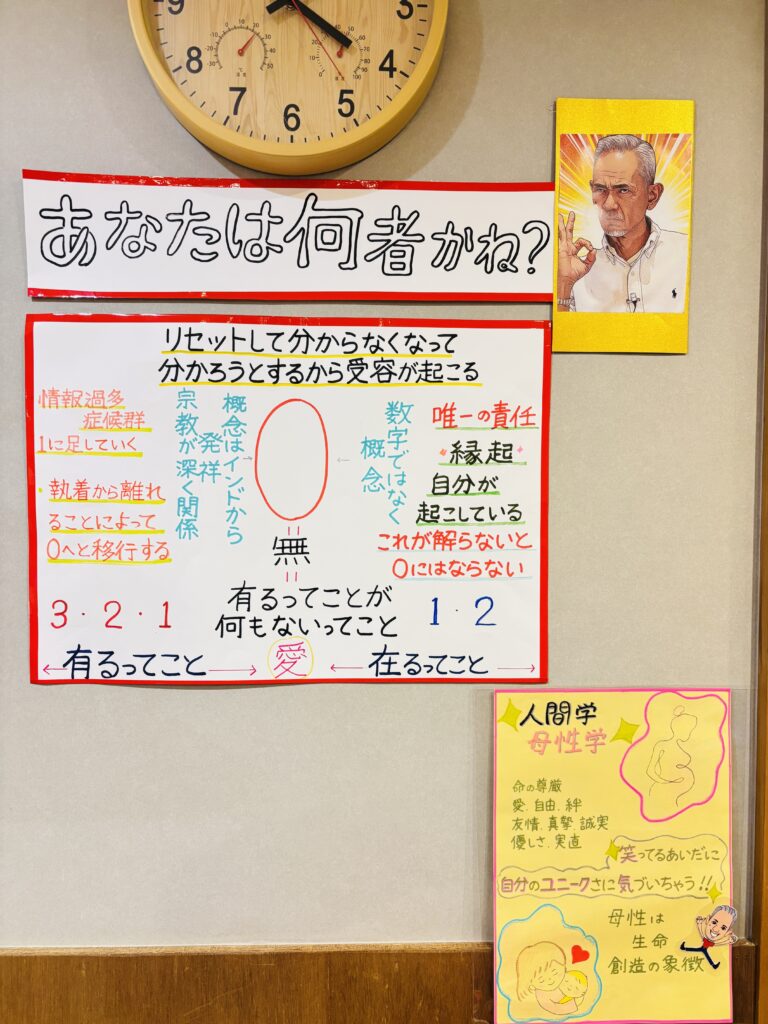 9
3
8
4
7
5
6
あなたは何者かね?
リセットして分からなくなって
分かろうとするから受容が起こる
情報過多
症候群
1に足していく
・執着から離れ
ることによって
0へと移行する
概念はインドから
発祥
宗教が深く関係
0
数字ではなく
概念
唯一の責任
縁起
自分が
起こしている
これが解らないと
0にはならない
=
無
=
有るってことが
何もないってこと
3・2・1
1・2
←有るってこと→
愛
←在るってこと→
人間学
母性学
命の尊厳
愛、自由、絆
友情、真摯、誠実
優しさ、実直
笑ってるあいだに
自分のユニークさに気づいちゃう!!
母性は
生命
創造の象徴